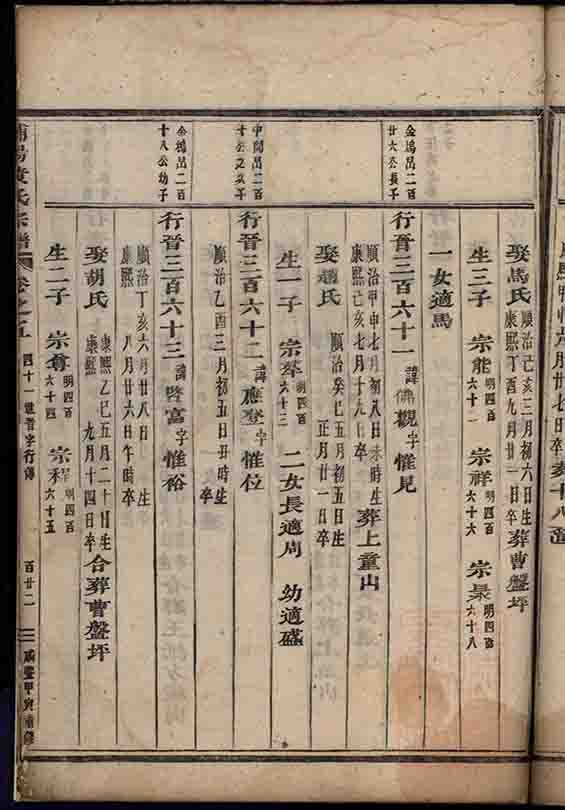 娶馬氏 順治己亥三月初六日生 康熙丁酉九月廿一日卒 葬曹盤坪
生三子 宗能 明四百六十一 宗祥 明四百六十六 宗最 明四百六十八
一女適馬
金塢呂二百廿六公長子
行晉三百六十一 諱佛觀字惟見
順治甲申七月初八日未時生 康熙己亥七月十九七卒 葬上童山
娶趙氏 順治癸巳五月初五日生 正月廿一日卒
生一子 宗萃 明四百六十三 二女長適周 幼適盛
中間呂二百十公之次子
行晉三百六十二 諱應登字惟位
順治乙酉三月初五日丑時生 卒
金塢呂二百十八公幼子
行晉三百六十三 諱啓富字惟裕
順治丁亥六月廿八日生 康熙 八月廿六日午時卒
娶胡氏 康熙乙巳五月二十日生 康熙 九月十四日卒 合葬曹盤坪
生二子 宗奪 明四百六十四 宗程 明四百六十五
黄氏宗譜 卷之五 四十一世晉字行傳 百廿二 咸豐甲寅重修